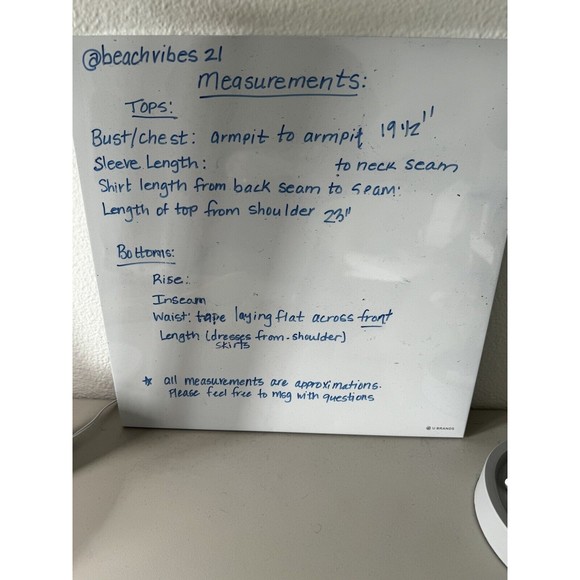 @beachvibes 21
Measurements:
TOPS:
Bust/chest: armpit to armpit 19 1/2"
Sleeve Length: to neck seam
Shirt length from back seam to seam:
Length of top from shoulder 23"
Bottoms:
Rise:
Inseam
Waist: tape laying flat across front
Length (dresses from-shoulder)
skirts
* all measurements are approximations.
Please feel free to msg with questions
U BRANDS